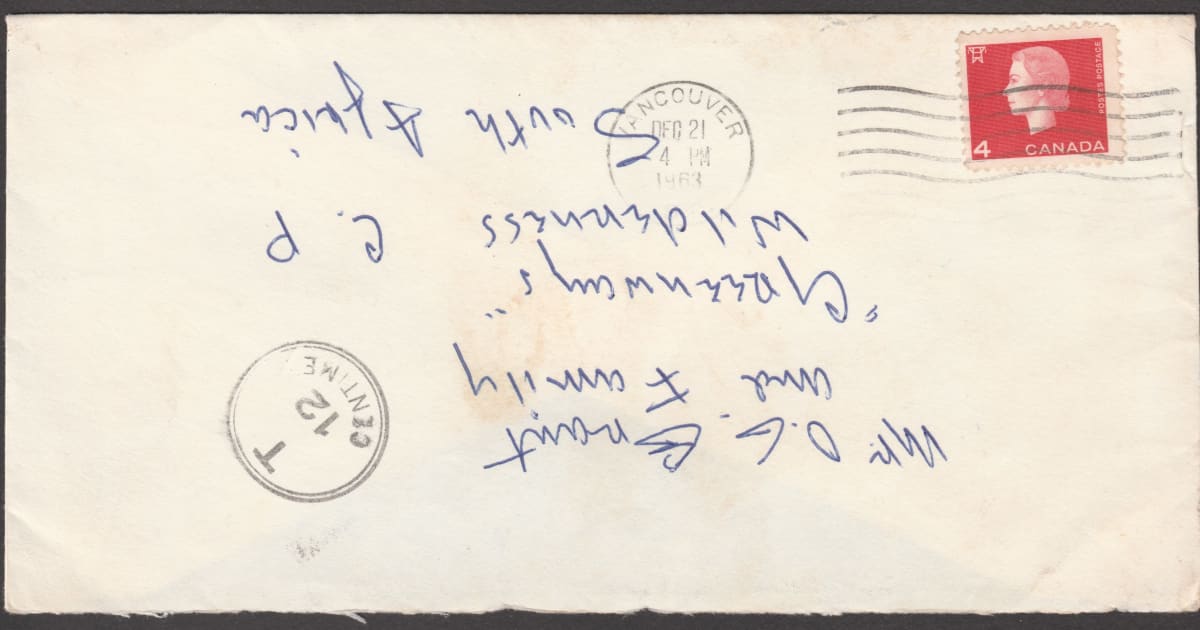 VANCOUVER
DEC 21
4 PM
1963
POSTES POSTAGE
4 CANADA
Mr. D.G.
and Family
"Greenways"
Wilderness C.P
South Africa
T
12
CENTIMES